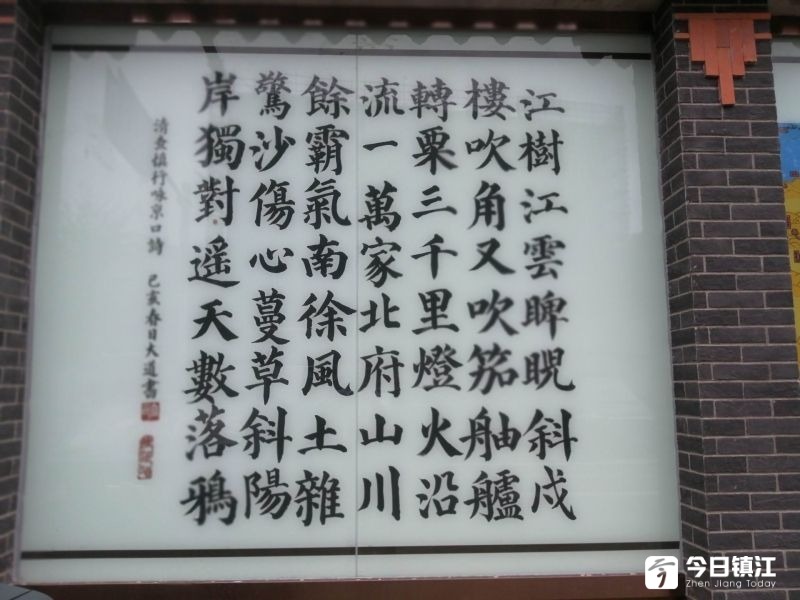 江樹江雲睥睨斜戍
樓吹角又吹笳舳艫
轉粟三千里燈火沿
流一萬家北府山川
餘霸氣南徐風土雜
驚沙傷心蔓草斜陽
岸獨對遥天數落鴉
清查慎行咏京口詩 己亥春日大道書
今日镇江
Zhen Jiang Today